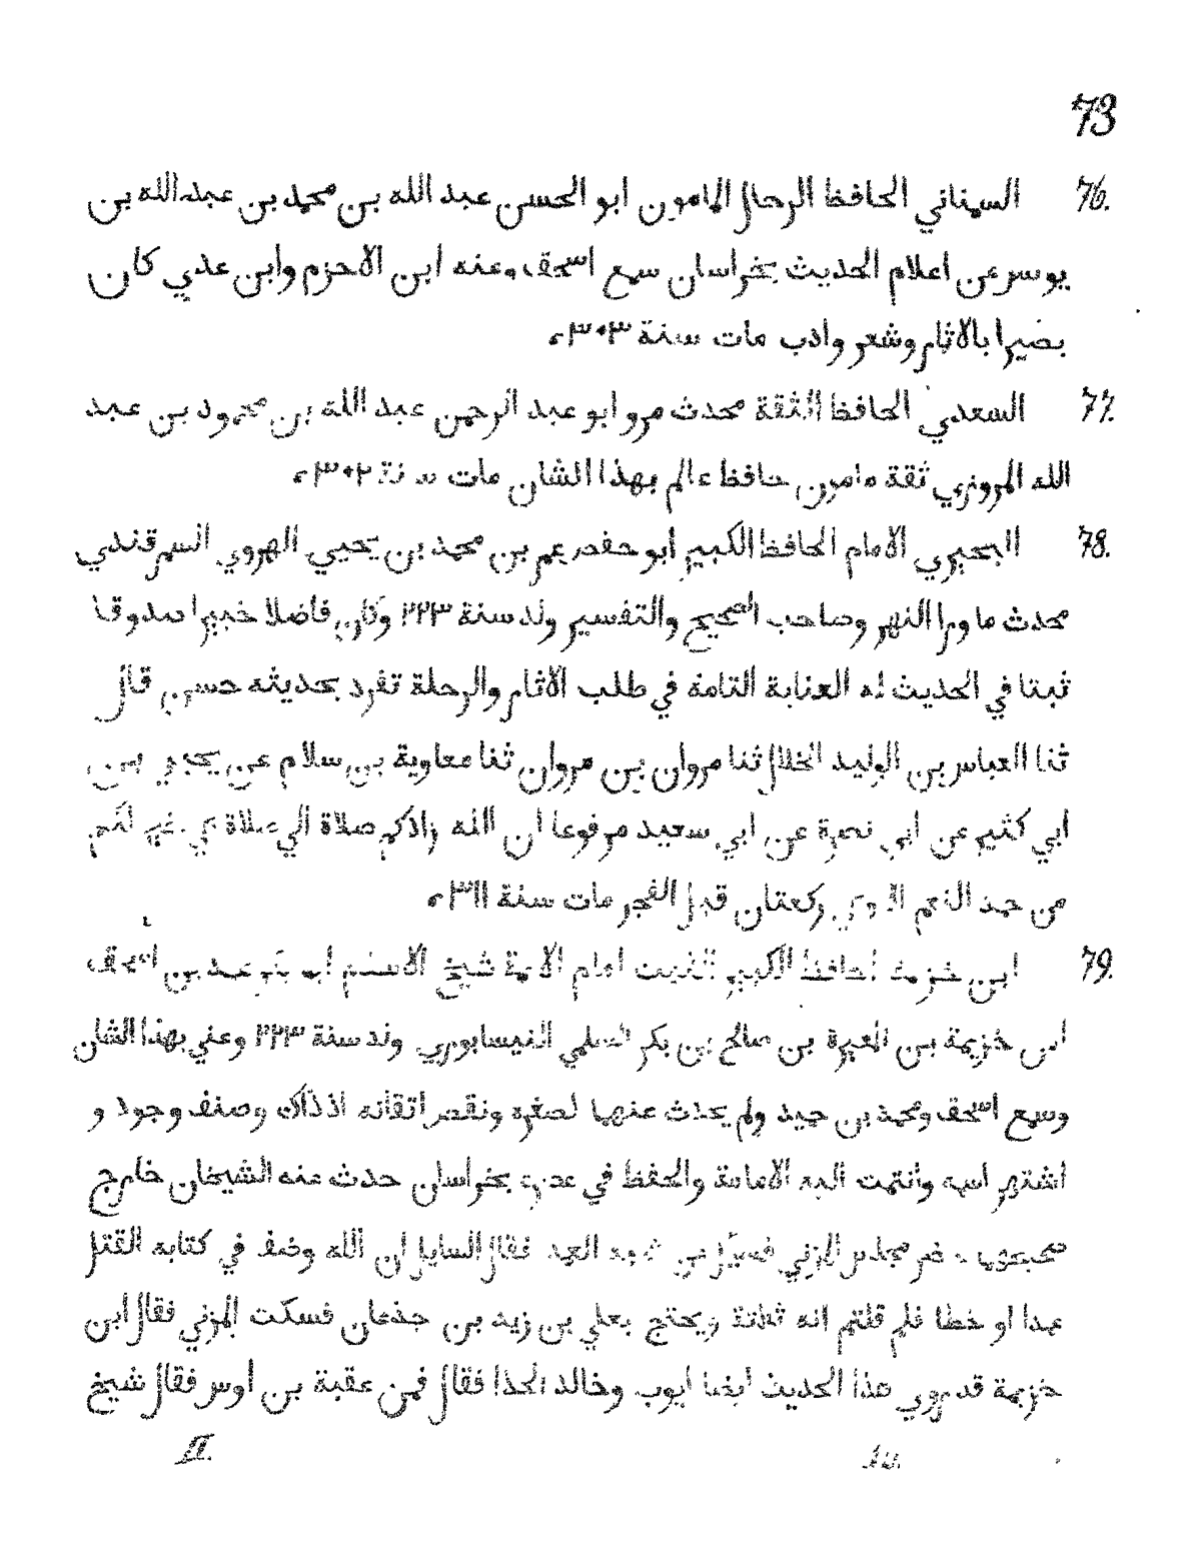 73
76. السمناني الحافظ الرحال المامون ابو الحسن عبد الله بن محمد بن عبد الله بن
يوسر عن اعلام الحديث بخراسان سمع اسحق وعنه ابن الاحزم وابن عدي كان
بصيرا بالاثار وشعر وادب مات سنة ٣٠٣
77. السعدي الحافظ الثقة محدث مرو ابو عبد الرحمن عبد الله بن محمود بن عبد
الله المروزي ثقة مامون حافظ عالم بهذا الشان مات سنة ٣٠٢
78. البحيري الامام الحافظ الكبير ابو حفص عمر بن محمد بن يحيي الهروي السمرقندي
محدث ما ورا النهر وصاحب الصحيح والتفسير ولد سنة ٢٢٣ وكان فاضلا خبيرا صدوقا
ثبتا في الحديث له العناية التامة في طلب الاثار والرحلة تفرد بحديثه حسين قال
ثنا العباس بن الوليد الخلال ثنا مروان بن مروان ثنا معاوية بن سلام عن يحيي بن
ابي كثير عن ابي نصرة عن ابي سعيد مرفوعا ان الله زادكم صلاة الي صلاة
من حمد النعم ركعتان قبل الفجر مات سنة ٣١١
79. ابن خزيمة الحافظ الكبير امام الايمة شيخ الاسلام بن اسحق
ابن خزيمة بن المغيرة بن صالح بن بكر السلمي النيسابوري ولد سنة ٢٢٣ وعني بهذا الشان
وسمع اسحق ومحمد بن حميد ولم يحدث عنهما لصغره ونقص اتقانه اذ ذاك وصنف وجود و
اشتهر اسمه وانتهت اليه الامامة والحفظ في عصره بخراسان حدث عنه الشيخان خارج
صحيحهما حضر مجلس المزني العمد فقال السايل ان الله وصف في كتابه القتل
عمدا او خطا فلم قلتم انه ثلاثة ويحتج بعلي بن زيد بن جذعان فسكت المزني فقال ابن
خزيمة قد روي هذا الحديث ايضا ايوب وخالد الحذا فقال فمن عقبة بن اوس فقال شيخ
10.
II.